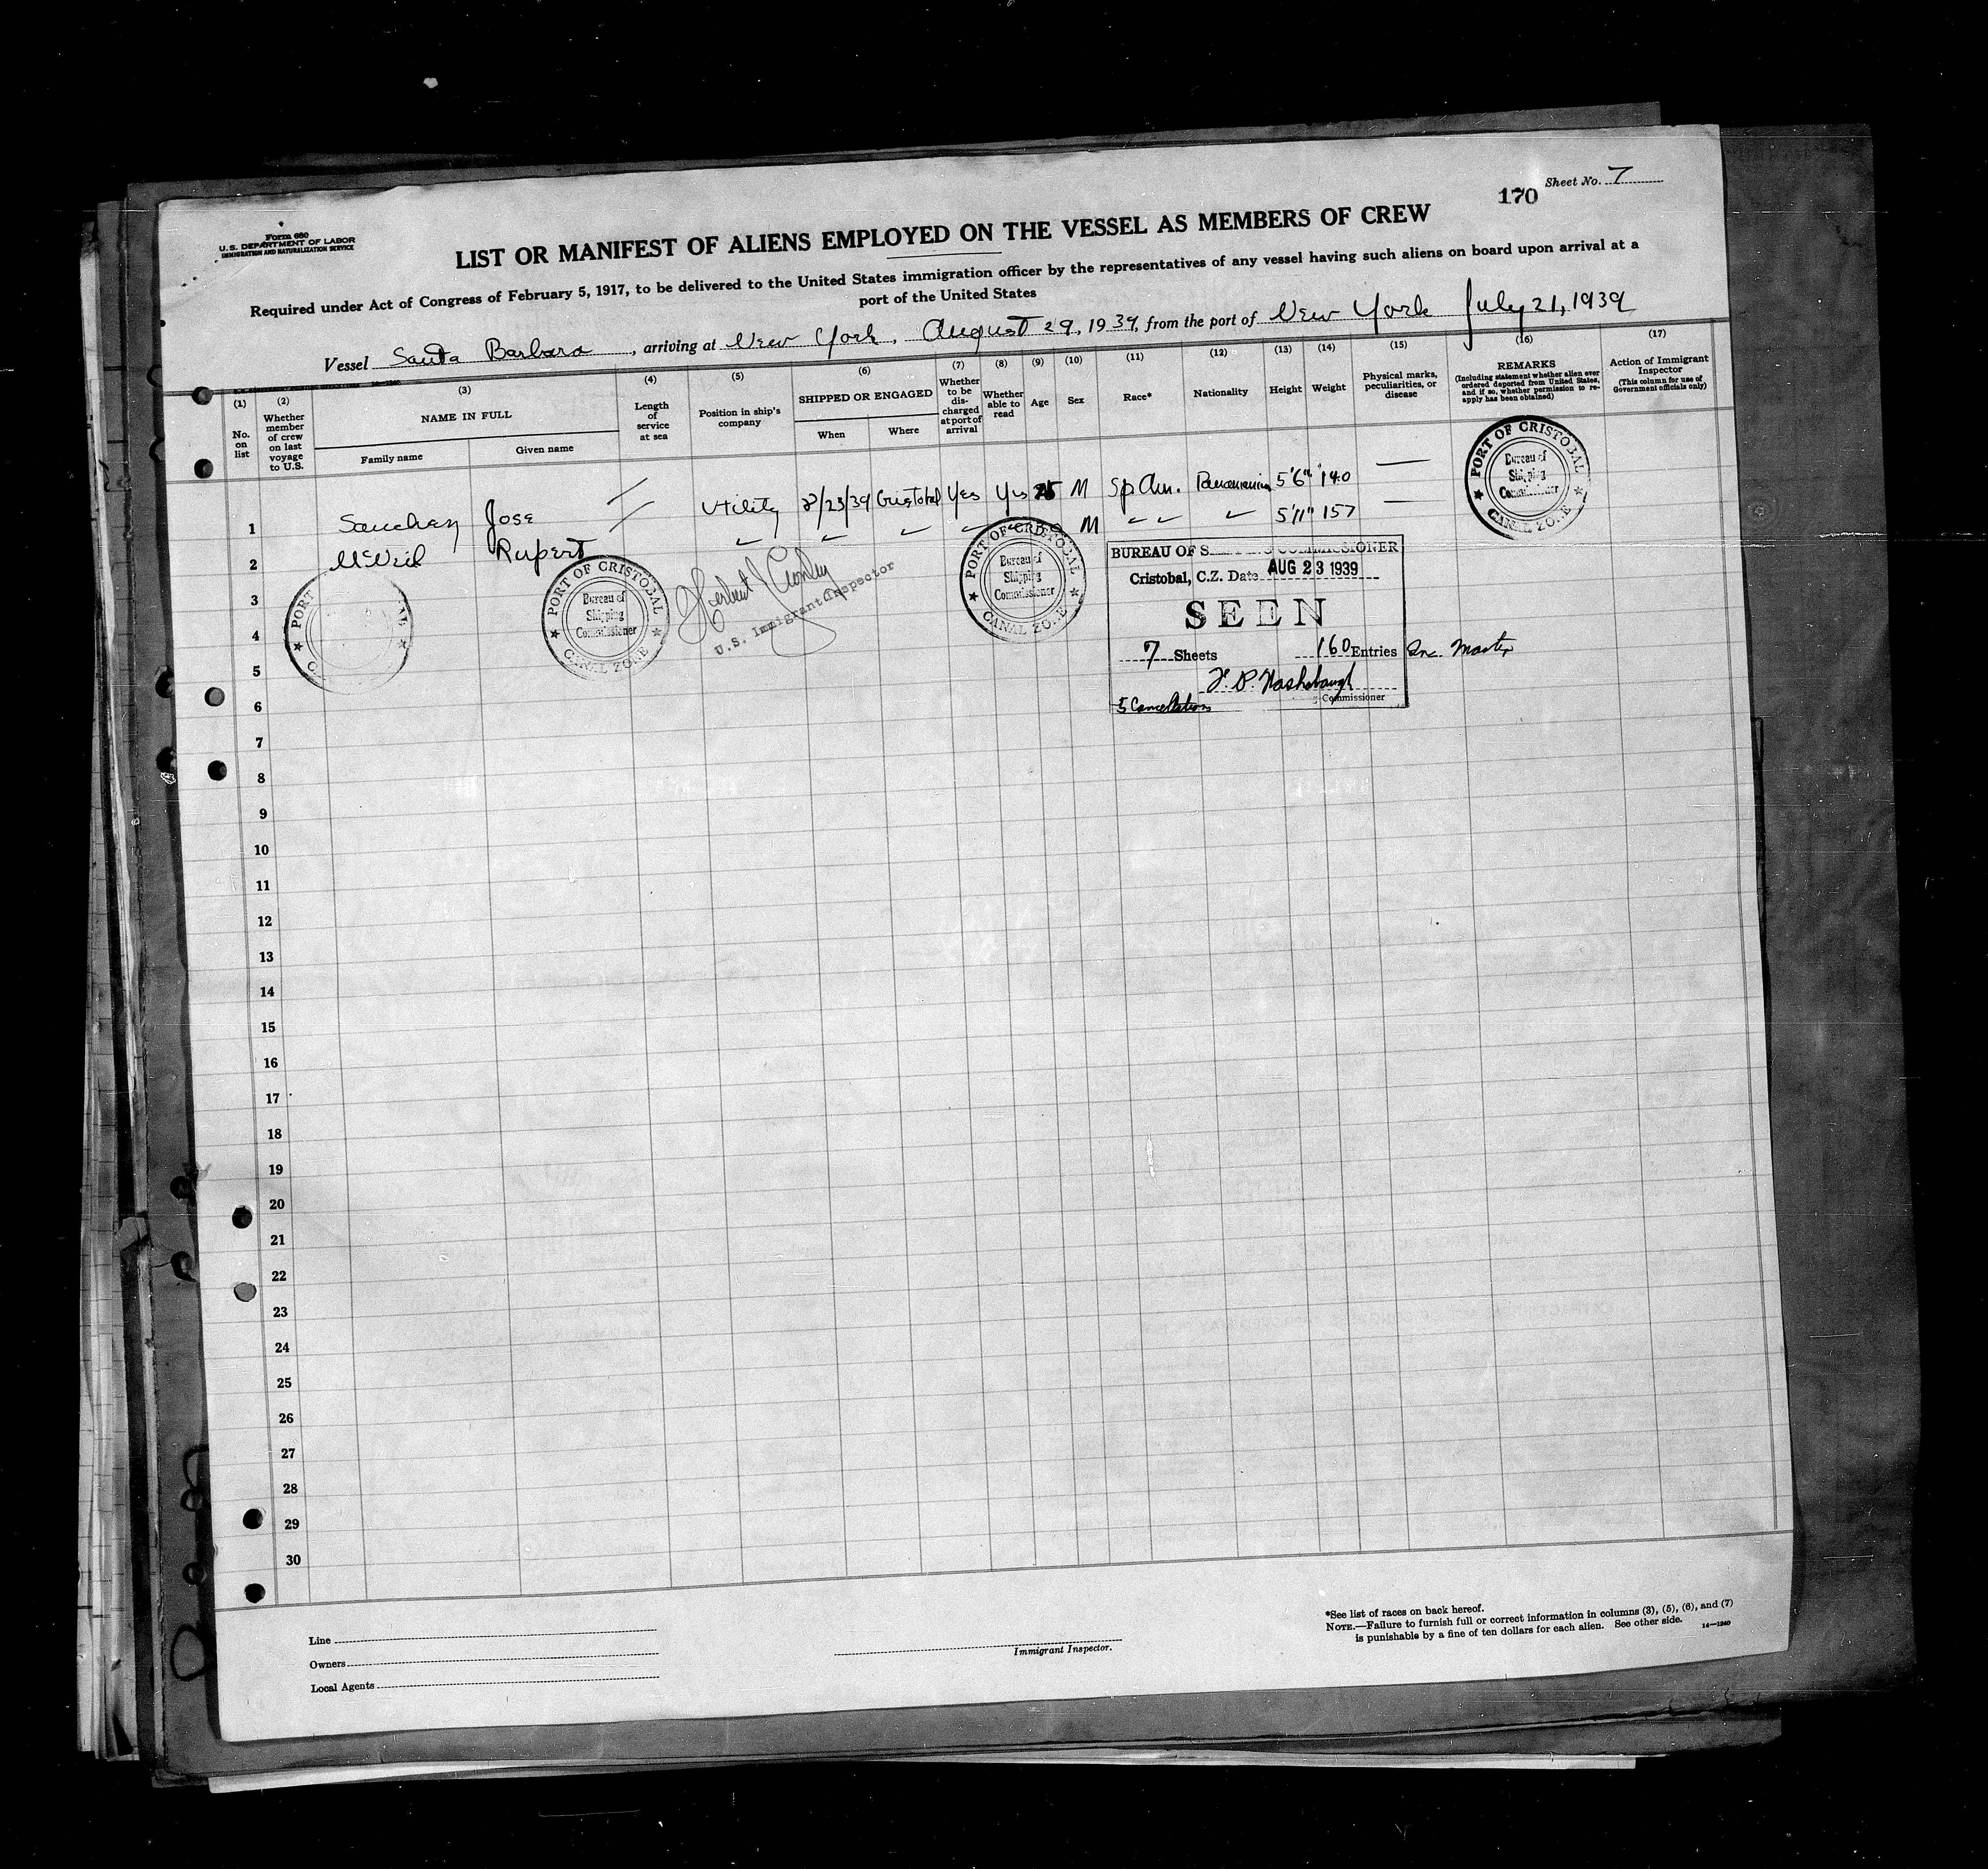 Sheet No. 7
170
Form 680
U. S. DEPARTMENT OF LABOR
IMMIGRATION AND NATURALIZATION SERVICE
LIST OR MANIFEST OF ALIENS EMPLOYED ON THE VESSEL AS MEMBERS OF CREW
Required under Act of Congress of February 5, 1917, to be delivered to the United States immigration officer by the representatives of any vessel having such aliens on board upon arrival at a
port of the United States
Vessel Santa Barbara, arriving at New York, August 29, 1939, from the port of New York July 21, 1939
(1) No. on list
(2) Whether member of crew on last voyage to U.S.
(3) NAME IN FULL
Family name Given name
(4) Length of service at sea
(5) Position in ship's company
(6) SHIPPED OR ENGAGED
When Where
(7) Whether to be discharged at port of arrival
(8) Whether able to read
(9) Age
(10) Sex
(11) Race*
(12) Nationality
(13) Height
(14) Weight
(15) Physical marks, peculiarities, or disease
(16) REMARKS
(Including statement whether alien ever ordered deported from United States, and if so, whether permission to reapply has been obtained)
(17) Action of Immigrant Inspector
(This column for use of Government officials only)
1 Sanchez Jose Utility 8/23/39 Cristobal Yes Yes 25 M Sp Am. Panamanian 5'6" 140 —
2 McNeil Rupert M 5'11" 157 —
3
4
5
6
7
8
9
10
11
12
13
14
15
16
17
18
19
20
21
22
23
24
25
26
27
28
29
30
PORT OF CRISTOBAL
Bureau of
Shipping
Commissioner
CANAL ZONE
PORT OF CRISTOBAL
Bureau of
Shipping
Commissioner
CANAL ZONE
PORT OF CRISTOBAL
Bureau of
Shipping
Commissioner
CANAL ZONE
PORT
U.S. Immigrant Inspector
BUREAU OF SHIPPING COMMISSIONER
Cristobal, C.Z. Date AUG 23 1939
SEEN
7 Sheets 160 Entries Inc. Master
Commissioner
5 Cancellations
Line
Owners
Local Agents
Immigrant Inspector.
*See list of races on back hereof.
NOTE.—Failure to furnish full or correct information in columns (3), (5), (6), and (7)
is punishable by a fine of ten dollars for each alien. See other side. 14—1240